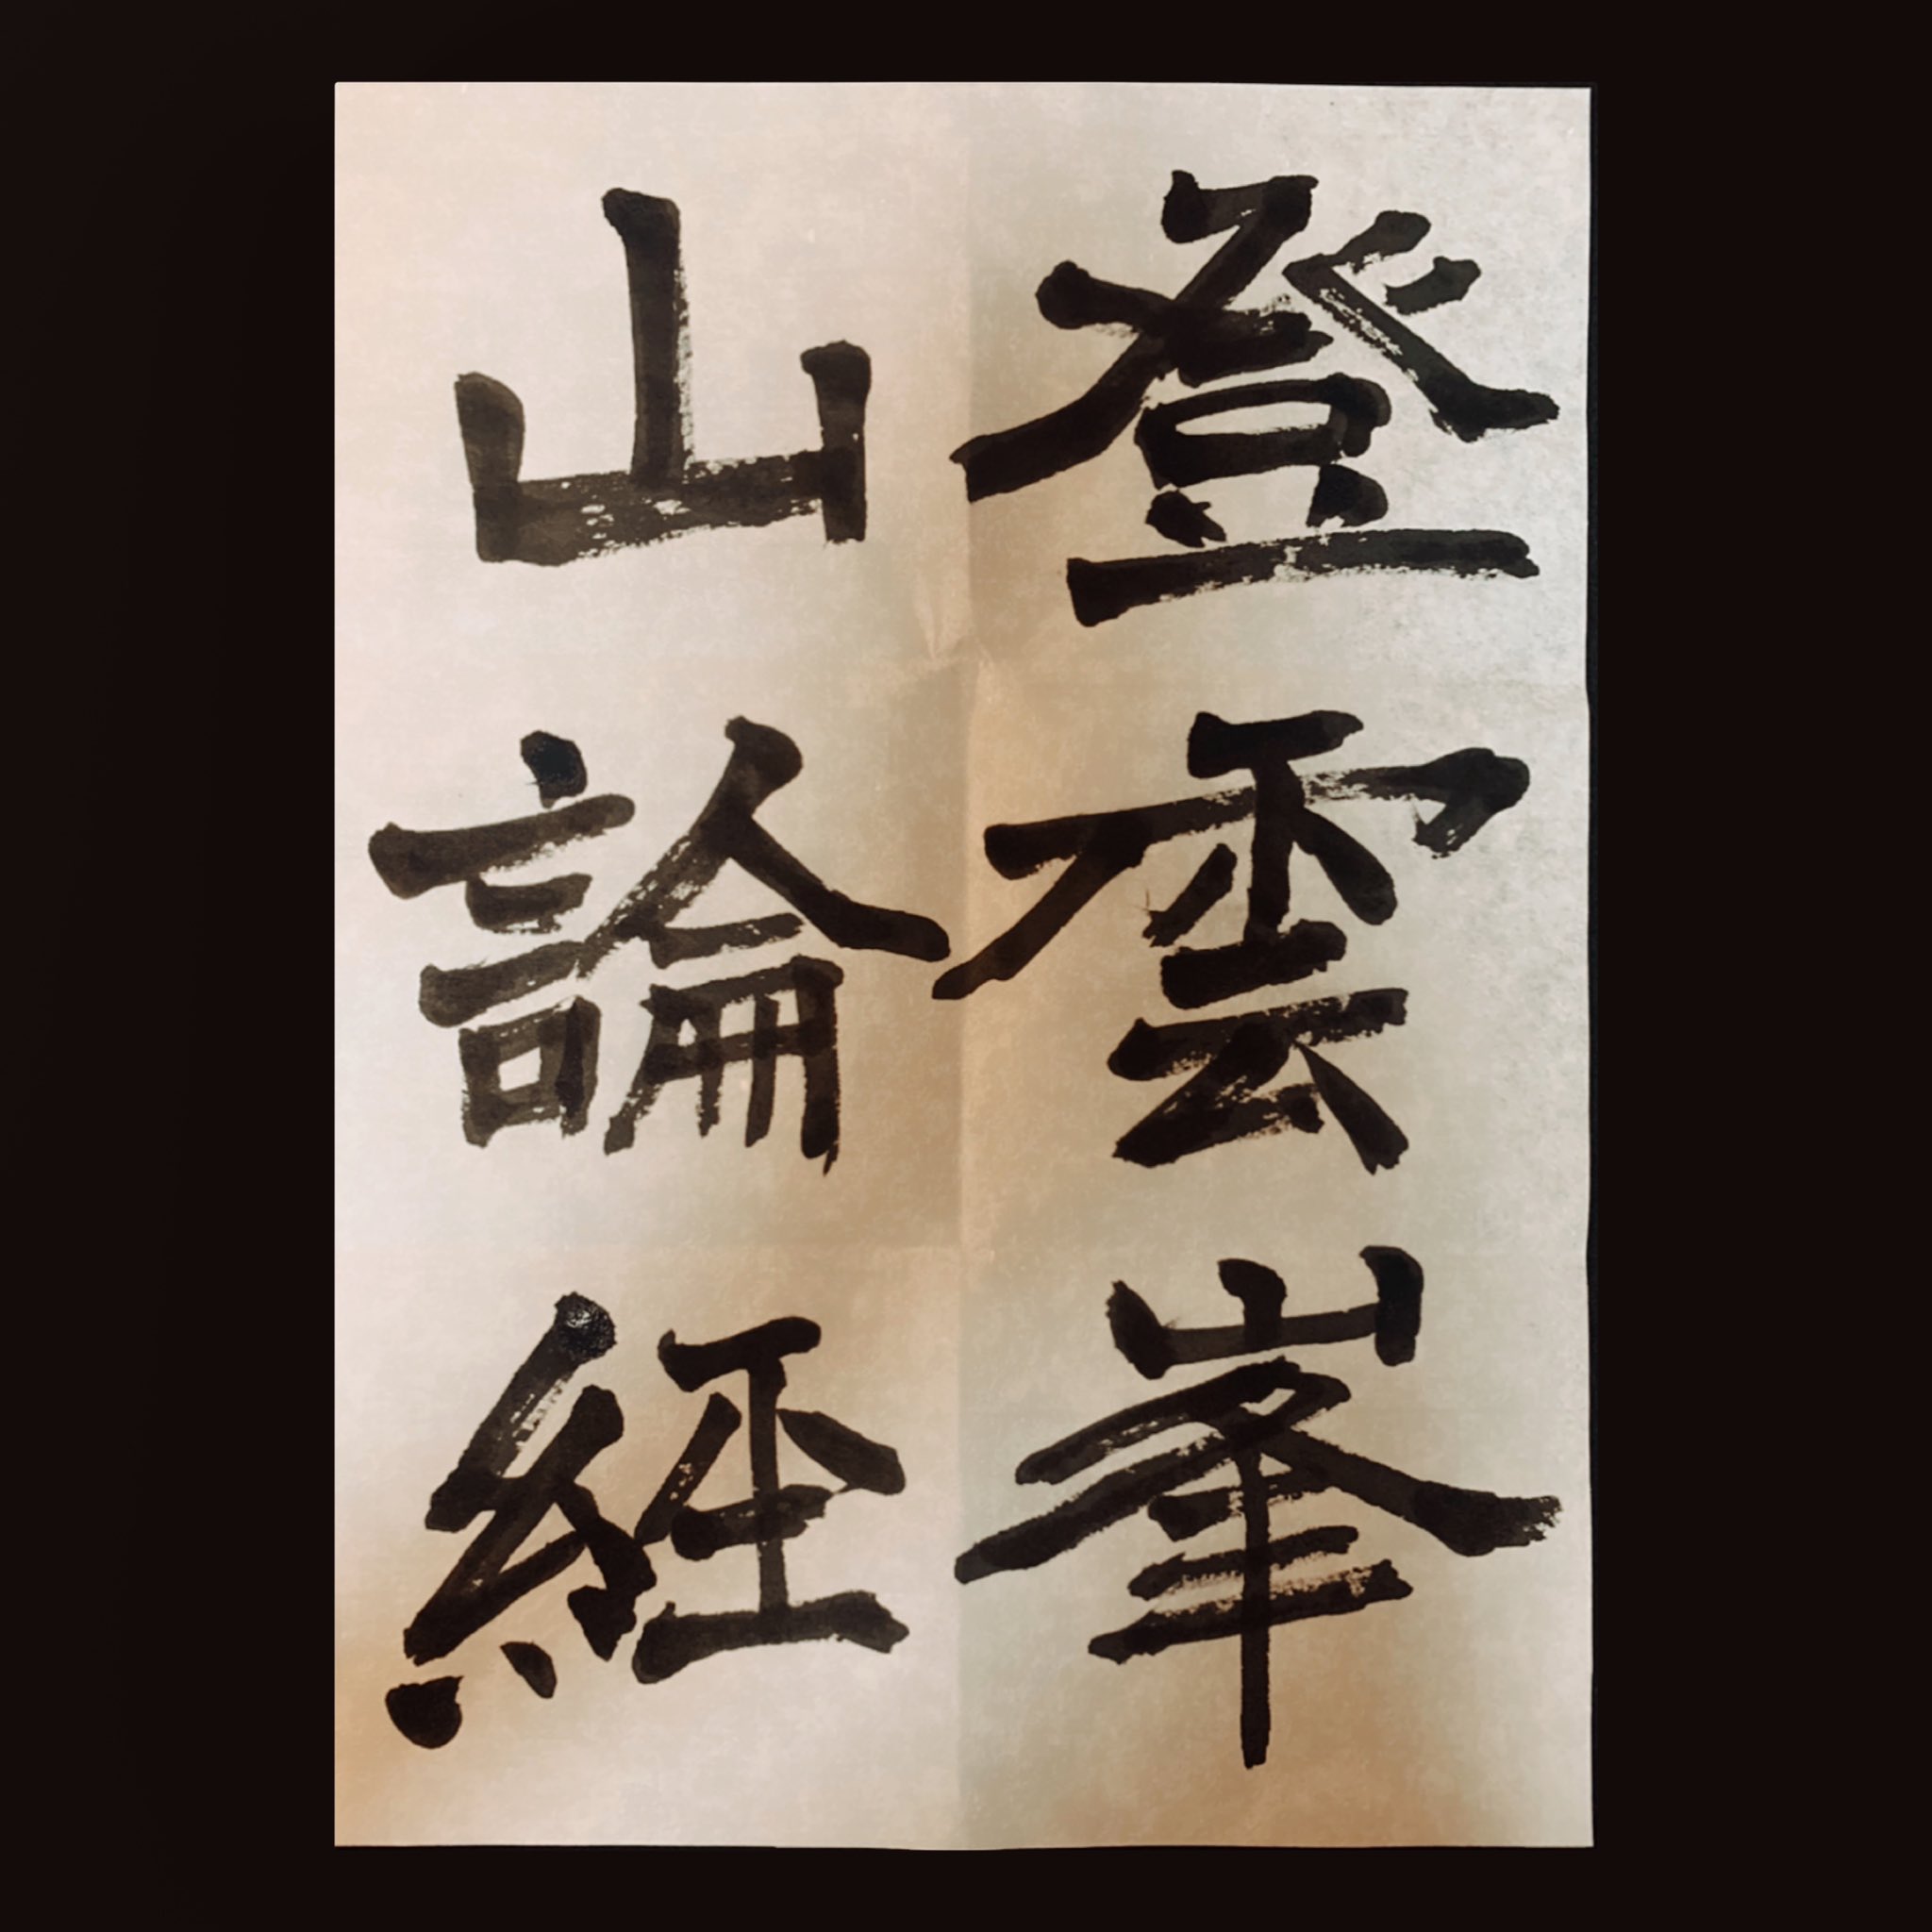 登雲峯
山論經